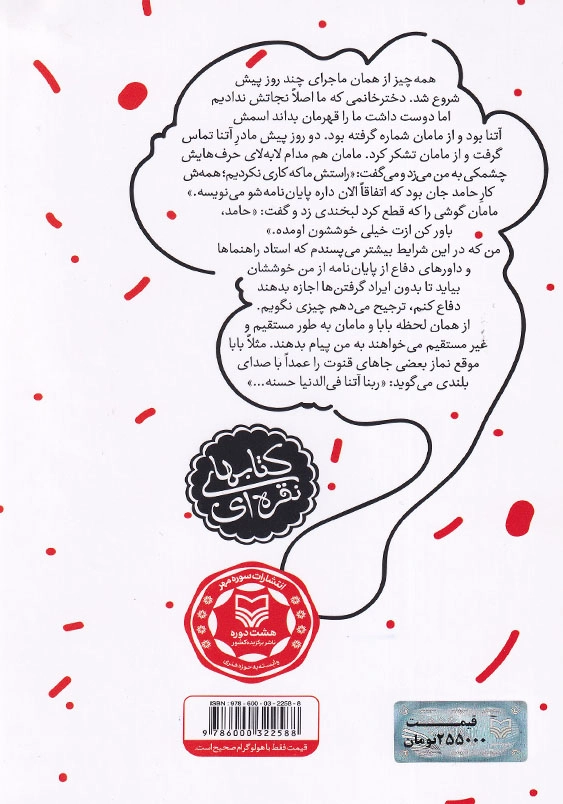 همه‌چیز از همان ماجرای چند روز پیش
شروع شد. دخترخانمی که ما اصلاً نجاتش ندادیم
اما دوست داشت ما را قهرمان بداند اسمش
آتنا بود و از مامان شماره گرفته بود. دو روز پیش مادرِ آتنا تماس
گرفت و از مامان تشکر کرد. مامان هم مدام لابه‌لای حرف‌هایش
چشمکی به من می‌زد و می‌گفت: «راستش ما که کاری نکردیم؛ همه‌ش
کارِ حامد جان بود که اتفاقاً الان داره پایان‌نامه‌شو می‌نویسه.»
مامان گوشی را که قطع کرد لبخندی زد و گفت: «حامد،
باور کن ازت خیلی خوششون اومده.»
من که در این شرایط بیشتر می‌پسندم که استاد راهنماها
و داورهای دفاع از پایان‌نامه از من خوششان
بیاید تا بدون ایراد گرفتن‌ها اجازه بدهند
دفاع کنم، ترجیح می‌دهم چیزی نگویم.
از همان لحظه بابا و مامان به طور مستقیم و
غیر مستقیم می‌خواهند به من پیام بدهند. مثلاً بابا
موقع نماز بعضی جاهای قنوت را عمداً با صدای
بلندی می‌گوید: «ربنا آتنا فی‌الدنیا حسنه...»
کتابهای
نقره‌ای
انتشارات سوره مهر
هشت دوره
ناشر برگزیده کشور
وابسته به حوزه هنری
ISBN: 978-600-03-2258-8
9786000322588
قیمت فقط با هولوگرام صحیح است.
قیمت
۲۵۵۰۰۰ تومان